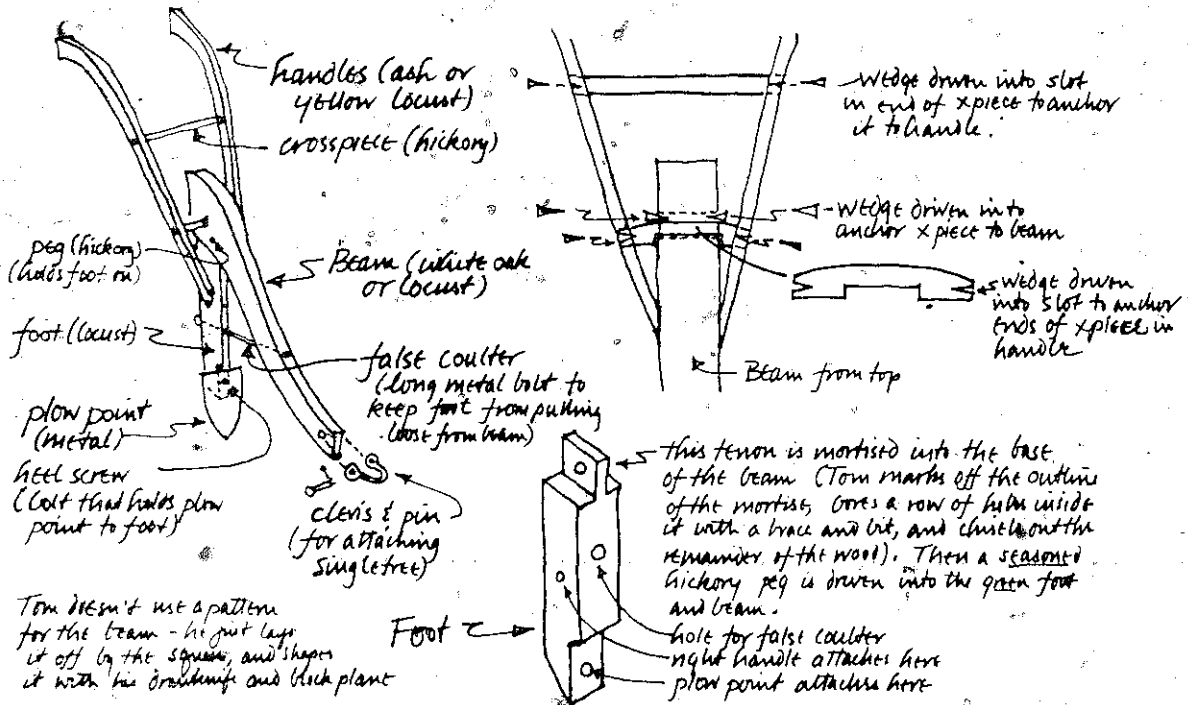 handles (ash or
yellow locust)
crosspiece (hickory)
peg (hickory)
(holds foot on)
Beam (white oak
or locust)
foot (locust)
false coulter
(long metal bolt to
keep foot from pulling
loose from beam)
plow point
(metal)
heel screw
(bolt that holds plow
point to foot)
clevis & pin
(for attaching
singletree)
Tom doesn't use a pattern
for the beam - he just lays
it off by the square, and shapes
it with his drawknife and block plane
wedge driven into slot
in end of xpiece to anchor
it to handle.
wedge driven into
anchor xpiece to beam
wedge driven
into slot to anchor
ends of xpiece in
handle
Beam from top
this tenon is mortised into the base
of the beam (Tom marks off the outline
of the mortise, bores a row of holes inside
it with a brace and bit, and chisels out the
remainder of the wood). Then a seasoned
hickory peg is driven into the green foot
and beam.
Foot
hole for false coulter
right handle attaches here
plow point attaches here